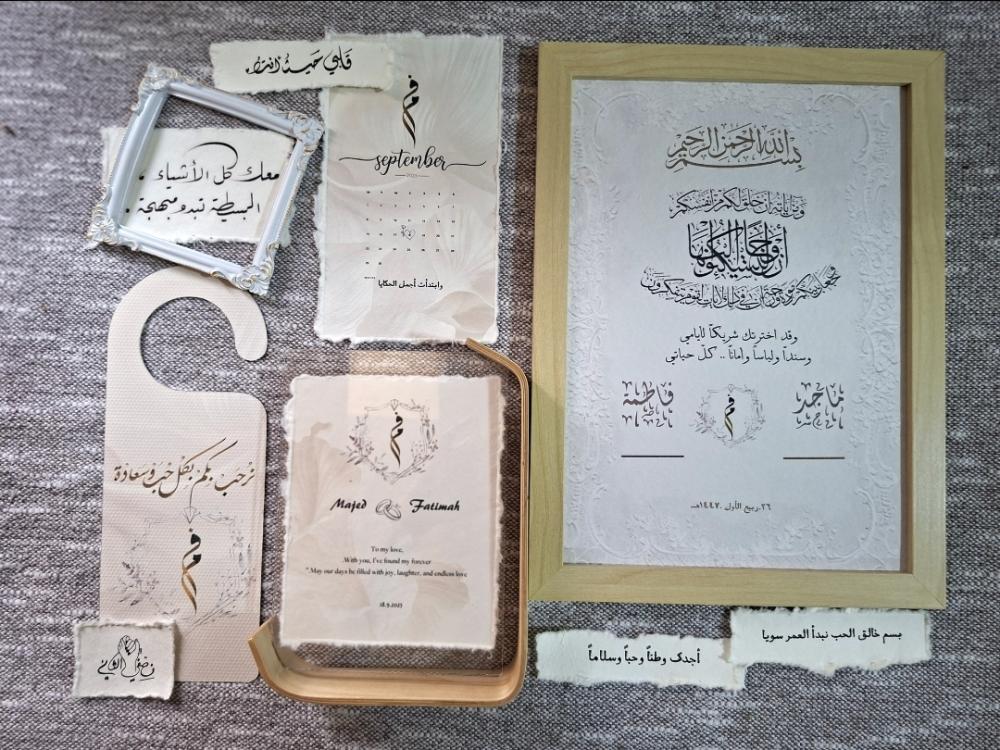 قلبي
معك كل الأشياء
البسيطة تبدو مبهجة .
فم
september
2025
وابتدأت أجمل الحكايا
نرحب بكم بكل حب وسعادة
فم
فم
Majed Fatimah
To my love,
.With you, I've found my forever
".May our days be filled with joy, laughter, and endless love
18.9.2025
بسم الله الرحمن الرحيم
ومن آياته أن خلق لكم من أنفسكم
أزواجا لتسكنوا إليها
وجعل بينكم مودة ورحمة إن في ذلك لآيات لقوم يتفكرون
وقد اخترتك شريكاً لأيامي
وسنداً ولباساً وأماناً .. كلّ حياتي
ماجد فاطمة
فم
٢٦.ربيع الأول .١٤٤٧هـ
بسم خالق الحب نبدأ العمر سويا
أجدك وطناً وحباً وسلاماً